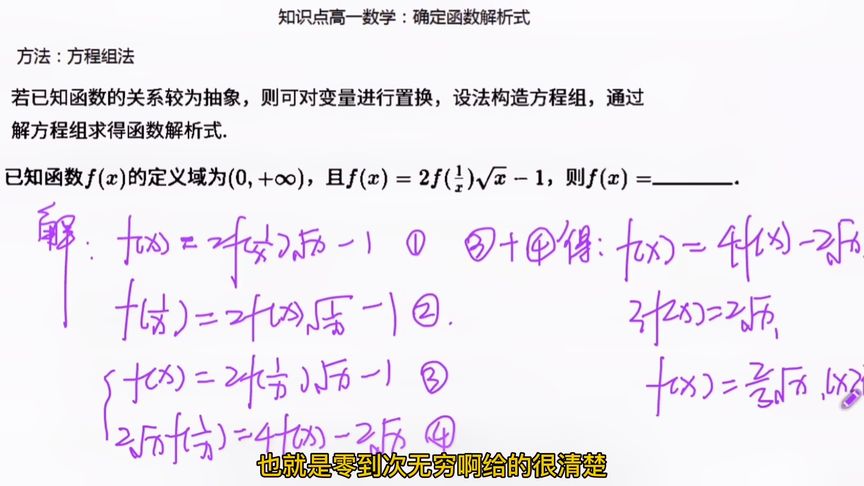 知识点高一数学：确定函数解析式
方法：方程组法
若已知函数的关系较为抽象，则可对变量进行置换，设法构造方程组，通过
解方程组求得函数解析式.
已知函数f(x)的定义域为(0,+∞)，且f(x) = 2f(1/x)√x − 1，则f(x) =______.
解： f(x) = 2f(1/x)√x − 1 ①
f(1/x) = 2f(x)√(1/x) − 1 ②.
f(x) = 2f(1/x)√x − 1 ③
2√x f(1/x) = 4f(x) − 2√x ④
③+④得： f(x) = 4f(x) − 2√x
f(x) = 2/3 √x
也就是零到次无穷啊给的很清楚